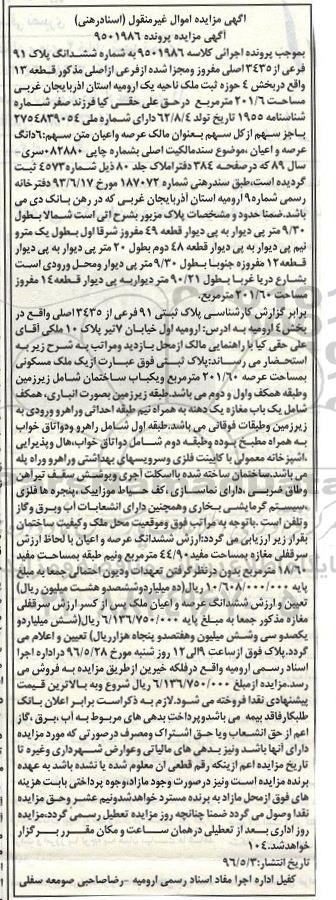 آگهی مزایده اموال غیرمنقول (اسنادرهنی)
آگهی مزایده پرونده ۹۵۰۱۹۸۶
بموجب پرونده اجرائی کلاسه ۹۵۰۱۹۸۶ به شماره ششدانگ پلاک ۹۱
فرعی از ۳۴۳۵ اصلی مفروز ومجزا شده ازفرعی ازاصلی مذکور قطعه ۱۳
واقع دربخش ۴ حوزه ثبت ملک ناحیه یک ارومیه استان آذربایجان غربی
مساحت ۲۰۱/۶ مترمربع درحق علی حقی کیا فرزند صفر شماره
شناسنامه ۱۹۵۵ تاریخ تولد ۶۲/۸/۴ دارای شماره ملی ۲۷۵۴۸۳۹۰۵۴
باجز سهم ازکل سهم بعنوان مالک عرصه واعیان متن سهم:۶دانگ
عرصه و اعیان ،موضوع سندمالکیت اصلی بشماره چاپی ۰۸۲۸۸۰سری-
سال ۸۹ که درصفحه ۳۸۴ دفتراملاک جلد ۸۰ ذیل شماره۴۵۷۳ ثبت
گردیده است،طبق سندرهنی شماره ۱۸۷۰۷۲ مورخ ۹۳/۶/۱۷ دفترخانه
رسمی شماره۹ ارومیه استان آذربایجان غربی که در رهن بانک دی می
باشد.ضمنا حدود و مشخصات پلاک مزبور بشرح آتی است شمالا بطول
۹/۳۰ متر پی دیوار به پی دیوار قطعه ۴۹ مفروز شرقا اول بطول یک مترو
نیم پی دیوار به پی دیوار قطعه ۴۸ دوم بطول ۲۰ متر پی دیوار به پی
قطعه۱۲ مفروزه جنوبا بطول ۹/۳۰ متر پی دیوار ومحل ورودی است
بشارع دریا غربا بطول ۹۰/۲۱ متر دیواربه پی دیوار قطعه۱۴ مفروز
مساحت ۲۰۱/۶۰ مترمربع.
برابر گزارش کارشناسی پلاک ثبتی ۹۱ فرعی از ۳۴۳۵ اصلی واقع در
بخش۴ ارومیه به آدرس: ارومیه اول خیابان ۷تیر پلاک ۱۰ ملکی آقای
علی حقی کیا با راهنمایی مالک ازمحل بازدید ومراتب به شرح زیر به
استحضار می رساند:پلاک ثبتی فوق عبارت ازیک ملک مسکونی
بمساحت عرصه ۲۰۱/۶۰ مترمربع ویکباب ساختمان شامل زیرزمین
وطبقه همکف واول و دوم می باشد.طبقه زیرزمین بصورت انباری، همکف
شامل یک باب مغازه یک دهنه به همراه نیم طبقه احداثی وراهرو ورودی به
زیرزمین وطبقات فوقانی می باشد.طبقه اول شامل راهرو ودواتاق خواب
به همراه مطبخ بوده وطبقه دوم شامل دواتاق خواب،هال وپذیرایی
،آشپزخانه معمولی با کابینت فلزی وسرویسهای بهداشتی وراهرو راه پله
می باشد.ساختمان ساخته شده بااسکلت آجری وپوشش سقف تیرآهن
وطاق ضربی ،دارای نماسازی ،کف حیاط موزاییک ،پنجره ها فلزی
،سیستم گرمایشی بخاری وهمچنین دارای انشعابات آب وبرق وگاز
وتلفن است .باتوجه به مراتب فوق وموقعیت محل ملک وکیفیت ساختمان
بقرار زیر ارزیابی می گردد:ارزش ششدانگ عرصه و اعیان با لحاظ ارزش
سرقفلی مغازه بمساحت مفید ۴۴/۹۰ مترمربع ونیم طبقه بمساحت مفید
۱۸/۶۰ مترمربع بدون درنظرگرفتن تعهدات ودیون احتمالی جمعا به مبلغ
پایه ۱۰/۶۰۸/۰۰۰/۰۰۰ ریال(ده میلیاردوششصدو هشت میلیون ریال)
تعیین و ارزش ششدانگ عرصه و اعیان ملک پس از کسر ارزش سرقفلی
مغازه مذکور جمعا به مبلغ پایه ۶/۱۳۶/۷۵۰/۰۰۰ ریال(شش میلیاردو
یکصدو سی وشش میلیون وهفتصدو پنجاه هزارریال) تعیین و اعلام می
گردد.پلاک فوق ازساعت ۹الی ۱۲ روز شنبه مورخ ۹۶/۵/۲۸ دراداره اجرا
اسناد رسمی ارومیه واقع درفلکه خیرین ازطریق مزایده به فروش می
رسد.مزایده ازمبلغ ۶/۱۳۶/۷۵۰/۰۰۰ ریال شروع وبه بالاترین قیمت
پیشنهادی نقدا فروخته می شود.لازم به ذکراست برابر اعلان بانک
طلبکارفاقد بیمه می باشدوپرداخت بدهی های مربوط به آب ،برق ،گاز
اعم از حق انشعاب ویا حق اشتراک ومصرف درصورتی که مورد مزایده
دارای آنها باشد ونیز بدهی های مالیاتی وعوارض شهرداری وغیره تا
تاریخ مزایده اعم ازینکه رقم قطعی آن معلوم شده یا نشده باشد به عهده
برنده مزایده است ونیز درصورت وجود مازاد،وجوه پرداختی بابت هزینه
های فوق ازمحل مازاد به برنده مسترد خواهدشدونیم عشر وحق مزایده
نقدا وصول می گردد ضمنا چنانچه روز مزایده تعطیل رسمی گردد،مزایده
روز اداری بعد از تعطیلی درهمان ساعت و مکان مقرر برگزار
خواهدشد.۱۰۴
تاریخ انتشار:۹۶/۵/۳
کفیل اداره اجرا مفاد اسناد رسمی ارومیه -رضاصاحبی صومعه سفلی